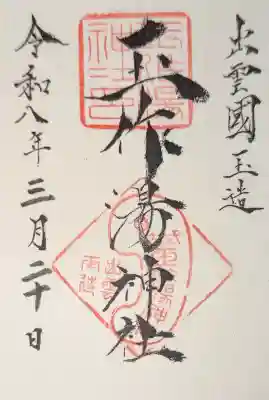 出雲國玉造
玉作湯神社
令和八年三月二十日